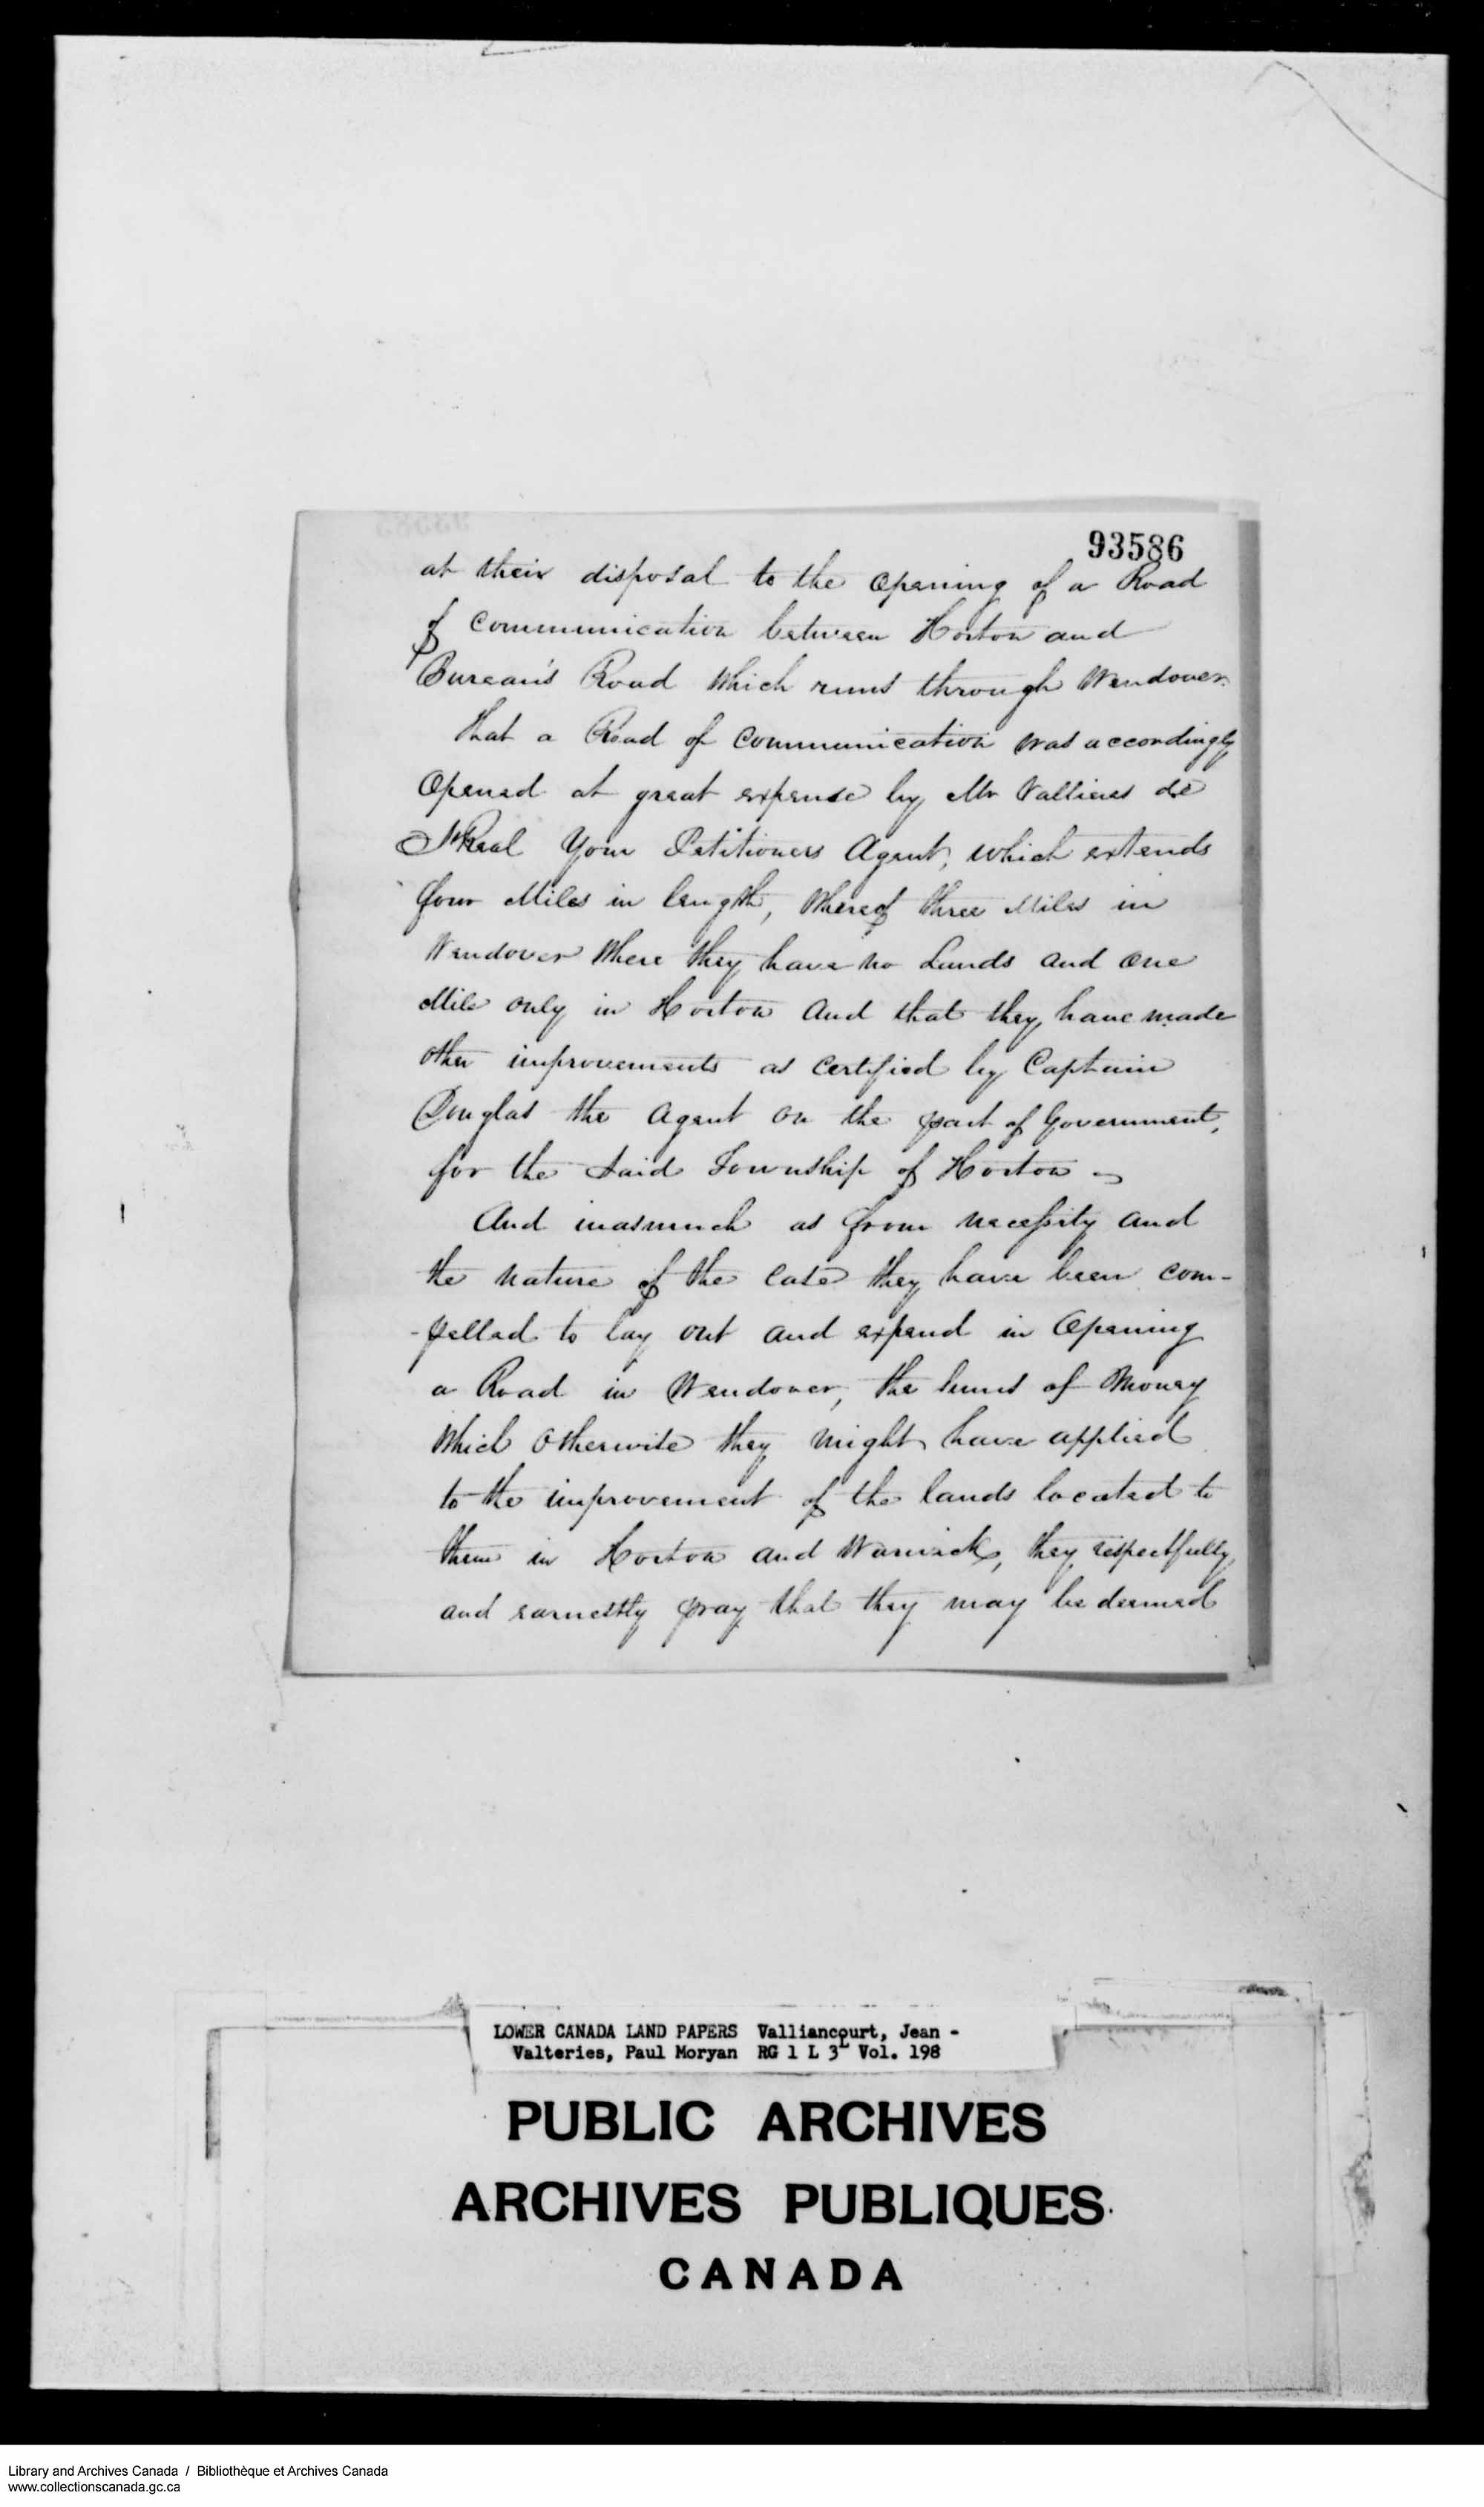 93586
at their disposal to the Opening of a Road
of Communication between Horton and
Bureau's Road which runs through Wendover.
That a Road of Communication was accordingly
Opened at great expense by Mr Vallieres de
St Real Your Petitioners Agent, which extends
four Miles in length, Whereof three Miles in
Wendover Where they have no Lands and One
Mile only in Horton And that they have made
other improvements as Certified by Captain
Douglas the Agent on the part of Government,
for the Said Township of Horton ~
And inasmuch as from necessity and
the Nature of the Case they have been com-
-pelled to lay out and expend in Opening
a Road in Wendover, the Sums of Money
Which Otherwise they might have applied
to the improvement of the lands located to
them in Horton and Warwick, they respectfully
and earnestly pray that they may be deemed
LOWER CANADA LAND PAPERS Valliancourt, Jean -
Valteries, Paul Moryan RG 1 L 3L Vol. 198
PUBLIC ARCHIVES
ARCHIVES PUBLIQUES
CANADA
Library and Archives Canada / Bibliothèque et Archives Canada
www.collectionscanada.gc.ca